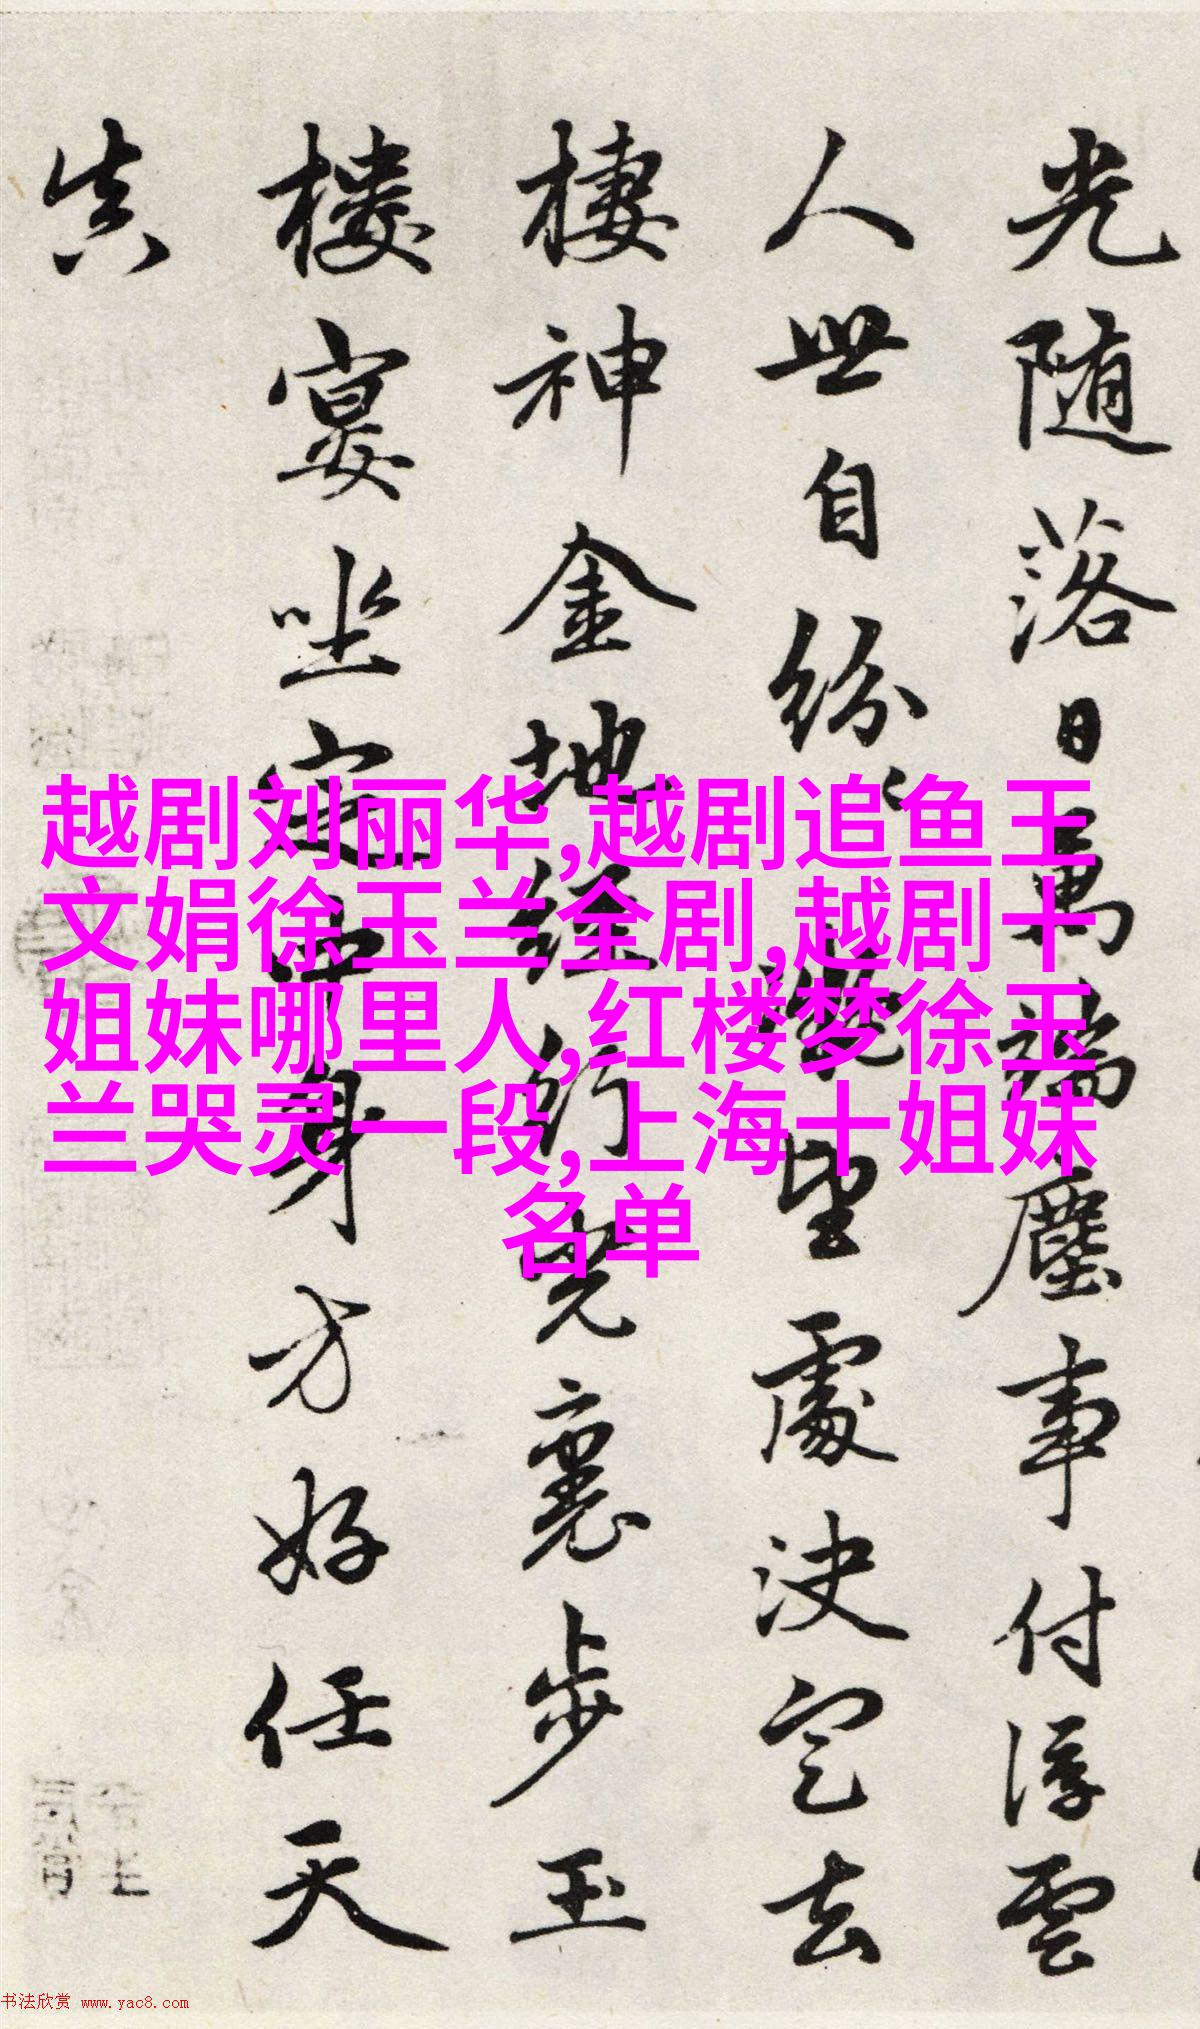 光随落日萬端塵事付浮雲
人世自紛〻望處决定去
棲神金地經行光裏步玉
楼宴坐定中身方好任天
真
越剧刘丽华,越剧追鱼王
文娟徐玉兰全剧,越剧十
姐妹哪里人,红楼梦徐玉
兰哭灵一段,上海十姐妹
名单
书法欣赏 www.yac8.com